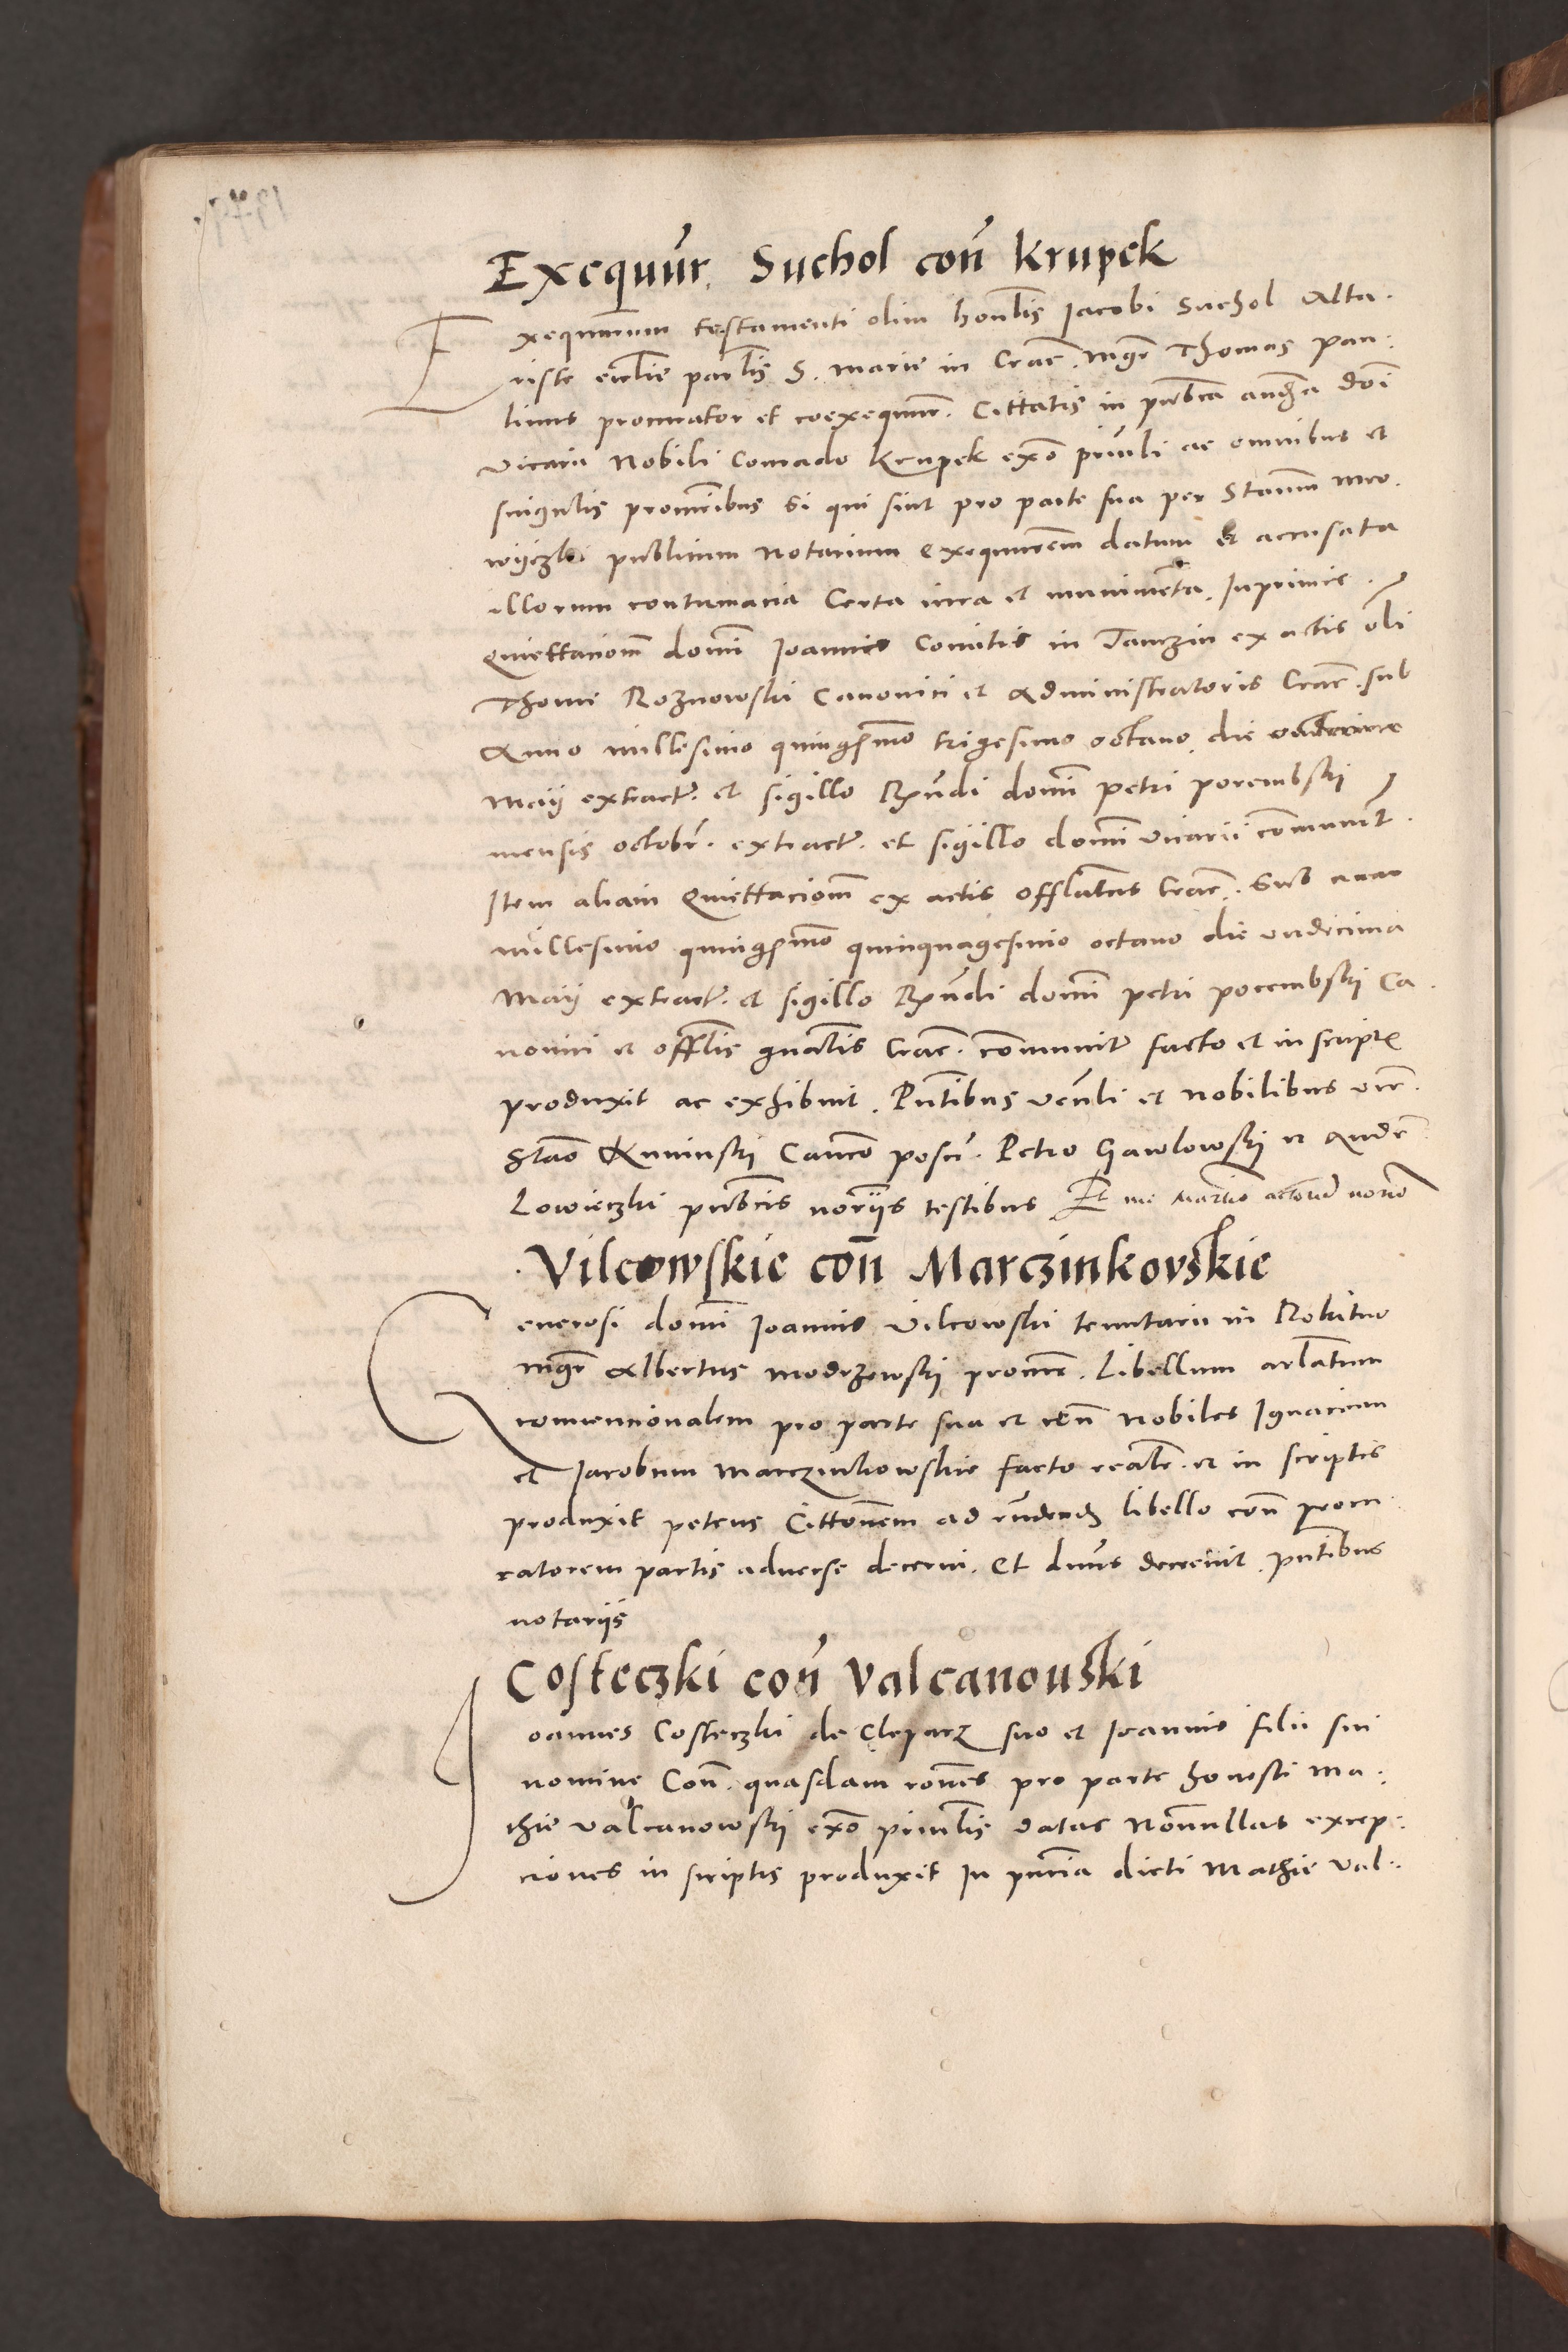 Exequut̃r. Suchol con̄ Krupek
Exequutorum testamenti olim honblis Jacobi Suchol Alta.
riste ecclie parlis S. Marie in Crac. Mgr̃ Thomas pau:
linus procurator et coexequut̃r. Cittatis in publica audĩa dni
vicarii Nobili Conrado Krupek exõ prĩnli ac omnibus et
singulis procur̃ibus si qui sint pro parte sua per Staum̃ mro.
publicum Notarium exequut̃rem datum et accusata
illorum contumacia Certa iura et munimẽta. Inprimis
Quiettaciom̃ domĩ Joannis Comitis in Tanczin ex actis oli
Thome Roznowski Canonici et Administratoris Crac. sub
Anno millesimo quingẽmo trigesimo octavo die
Maij extractũ et sigillo Rũndi domĩ Petri Porembski
mensis octobr̃. extractũ. et sigillo domĩ vicarii communĩt.
Item aliam Quiettaciom̃ ex actis offlatus Crac. Sub anno
millesimo quingẽmo quinquagesimo octavo die undecima
Maij extractũ. et sigillo Rũndi domĩ Petri porembski Ca.
nonici et offlis gnalis Crac. communitũ facto et in scriptis
produxit ac exhibuit. Pñtibus veñli et Nobilibus vir̃.
Stao Kuninski Canco posñ. Petro Gawlowski et Andr̃
Lowieczki publcis noriis testibus Et me Martino actorũ norio
Vilcowskie con̄ Marczinkovskie
Generosi domĩ Joannis Vilcowski tenutarii in Rokitno
mgr̃ Albertus Modrzewski procur̃. Libellum arlatum
convencionalem pro parte sua et con̄ Nobiles Ignacium
et Jacobum Marczinkowskie facto realr̃ et in scriptis
produxit petens Cittõnem ad rñdendũ libello con̄ procu
ratorem partis adverse decerni. Et dñus decrevit. pñtibus
notariis
Costeczki con̄ Valcanouski
Joannes Costeczki de Cleparz suo et Joannis filii sui
nomine Con̄. quasdam rõnes pro parte honesti Ma.
thie Valcanowski exõ prĩnlis datas Nonnullas excep:
ciones in scriptis produxit In pñcia dicti Mathie Val: